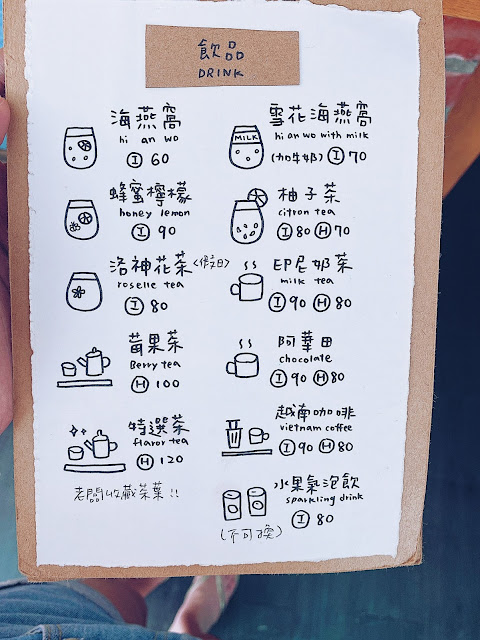 飲品
DRINK
海燕窩
hi an wo
I 60
蜂蜜檸檬
honey lemon
I 90
洛神花茶<假日>
roselle tea
I 80
莓果茶
Berry tea
H 100
特選茶
flavor tea
H 120
老闆收藏茶葉!!
雪花海燕窩
MILK
hi an wo with milk
(加牛奶) I 70
柚子茶
citron tea
I 80 H 70
印尼奶茶
milk tea
I 90 H 80
阿華田
chocolate
I 90 H 80
越南咖啡
vietnam coffee
I 90 H 80
水果氣泡飲
sparkling drink
I 80
(不可換)